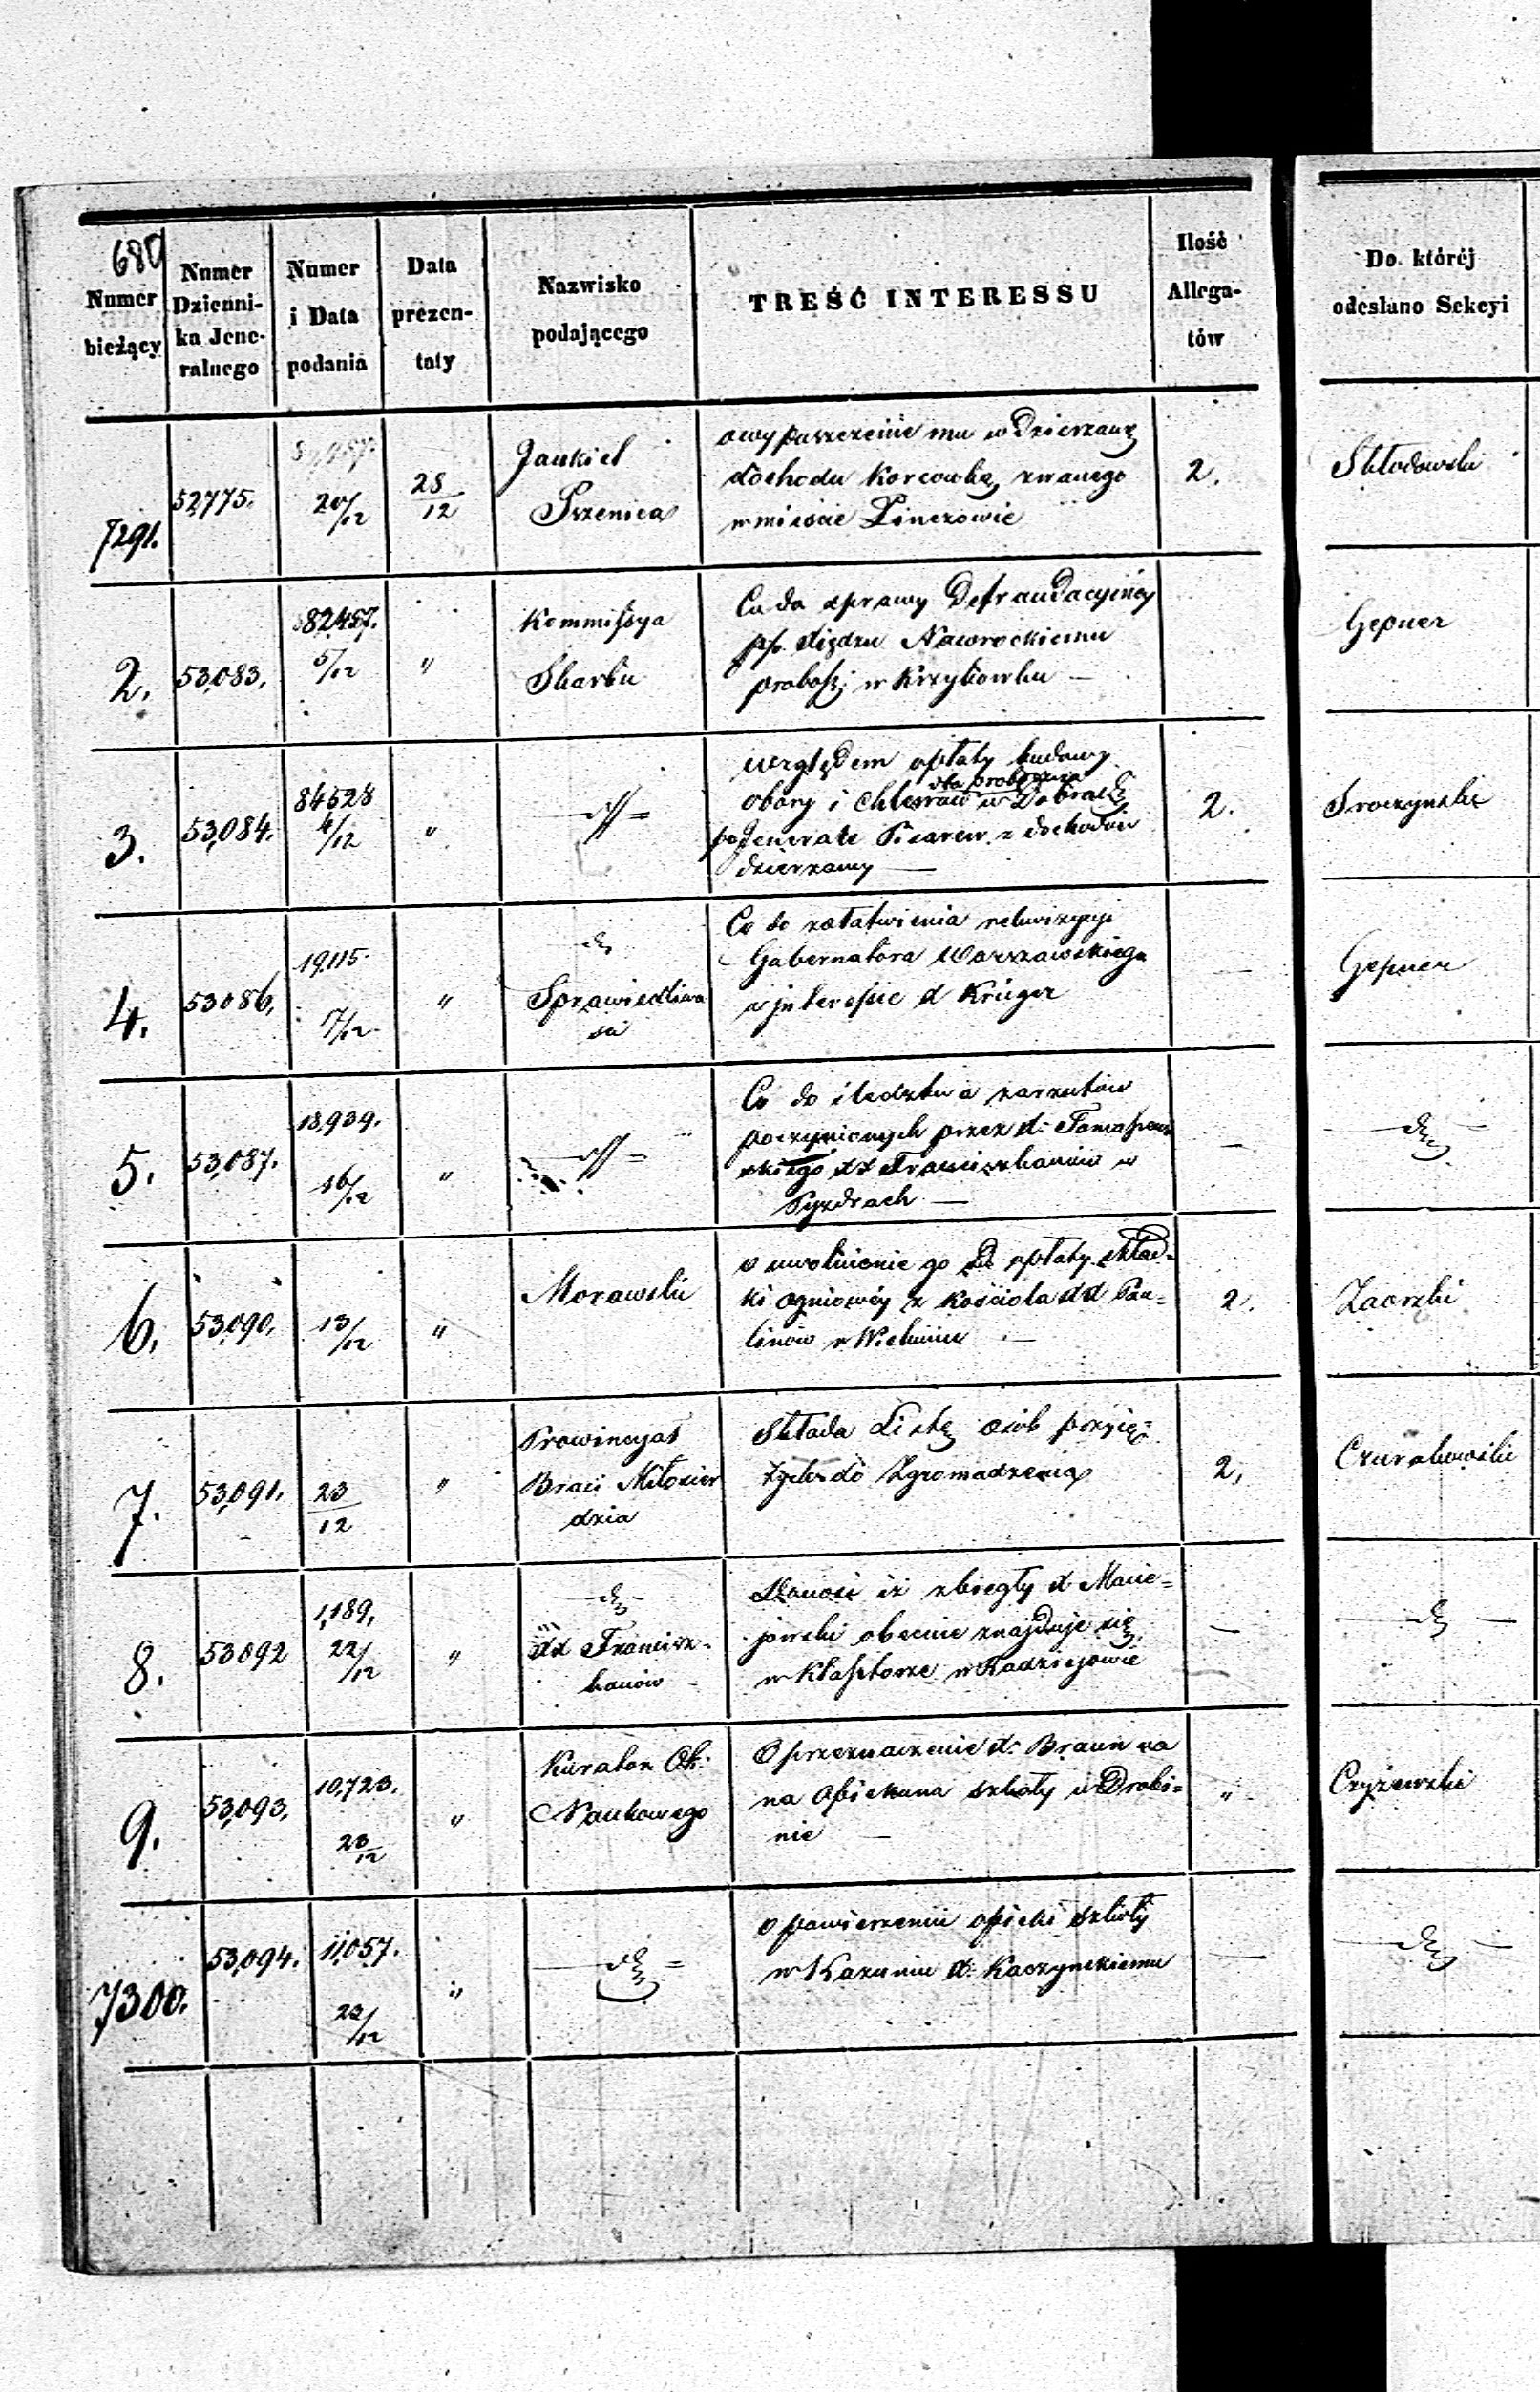 680
Numer bieżący | Numer Dziennika Jeneralnego | Numer i Data podania | Data prezentaty | Nazwisko podającego | TREŚĆ INTERESSU | Ilość Allegatów | Do któréj odesłano Sekcyi
7291. | 52,775. | 20/12 | 28/12
Jankiel
Pszenica
o wypuszczenie mu w Dzierzawę
dochodu Korcowką zwanego
w mieście Pinczowie
2.
Skłodowski
2. | 53,083. | 82457. 5/12 | "
Kommissya
Skarbu
Co do sprawy Defraudacyinéj
pp. Xiędzu Nawrockiemu
probosz: w
Gepner
3. | 53,084. | 84528 4/12 | "
względem opłaty budowy
dla proboszcza
obory i chlewów w
po Jenerale z dochodów
dzierzawy —
2.
4. | 53086. | 19,115. 17/12 | "
do
Sprawiedliwo
ści
Co do załatwienia rekwizycyi
Gubernatora Warszawskiego
w interessie X Krüger
—
Gepner
5. | 53,087. | 18,939. 16/12 | "
Co do śledztwa zarzutów
poczynionych przez X:
skiego XX Franciszkanów w
Pyzdrach —
—
do
6. | 53,090. | 13/12 | "
Morawski
o uwolnienie go od opłaty skład-
ki ogniowéj z kościoła XX Pau-
linów w Wieluniu —
2.
Zaorski
7. | 53,091. | 23/12 | "
Prowincyał
Braci Miłosier
dzia
Składa Listę osób przyię=
tych do Zgromadzenia
2,
8. | 53092 | 1,189, 22/12 | "
do
XX Francisz-
kanów
Donosi iż zbiegły X Macie=
jowski obecnie znajduje się
w Klasztorze w Radziejowie
—
do
9. | 53,093. | 10,723. 23/12 | "
Kurator Ok:
Naukowego
O przeznaczenie X: Braun za
na opiekuna szkoły w Drobi=
nie —
"
Czyżewski
7300. | 53,094. | 11,057. 23/12 | "
do
o powierzeniu opieki szkoły
w Kazuniu X: Kaczynskiemu
—
do